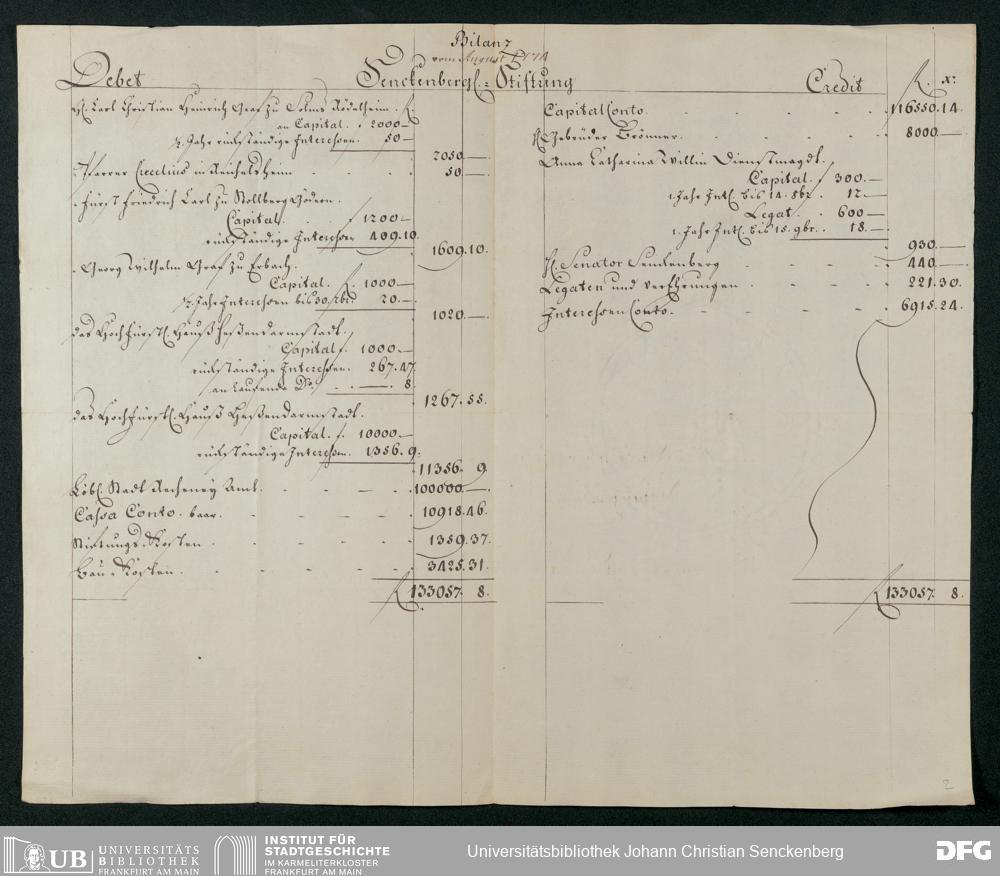 Bilanz
vom August 1774
Debet Senckenbergl. Stiftung Credit
f. xr.
H. Carl Christian Heinrich Graf zu Solms Rödelheim. f
an Capital. 2000 —
½ Jahr rückständige Interessen. 50 —
2050 —
Pfarrer Crecelius in Reichelsheim 50 —
Fürst Friedrich Carl zu Stollberg Gödern.
Capital. f 1200 —
rückständige Interessen 409.10
1609.10.
Georg Wilhelm Graf zu Erbach.
Capital. f. 1000 —
½ Jahr Interessen bis 30. 20 —
1020. —
das Hochfürstl. Hauß Heßendarmstadt.
Capital f. 1000 —
rückständige Interessen. 267.47.
an laufende Do. — 8.
1267.55.
das Hochfürstl. Hauß Heßendarmstadt.
Capital. f. 10000 —
rückständige Interessen. 1356.9.
11356. 9
Löbl. Stadt Recheney Amt. 100000 —
Cassa Conto. baar. 10918.46.
Stiftungs Kosten. 1359.37.
Bau Kosten. 3425.31.
f 133057. 8.
Capital Conto. 116550.14.
H. Gebrüder Brönner. 8000 —
Anna Catharina Willin Dienstmagd.
Capital. f 300. —
1. Jahr Intl. bis 14. 8br. 12 —
Legat. 600 —
1. Jahr Intl. bis 15. 9br. 18. —
930. —
H. Senator Senckenberg 440. —
Legaten und Verehrungen 221.30.
Interessen Conto. 6915.24.
f 133057. 8.
2
UB UNIVERSITÄTS
BIBLIOTHEK
FRANKFURT AM MAIN
INSTITUT FÜR
STADTGESCHICHTE
IM KARMELITERKLOSTER
FRANKFURT AM MAIN
Universitätsbibliothek Johann Christian Senckenberg
DFG